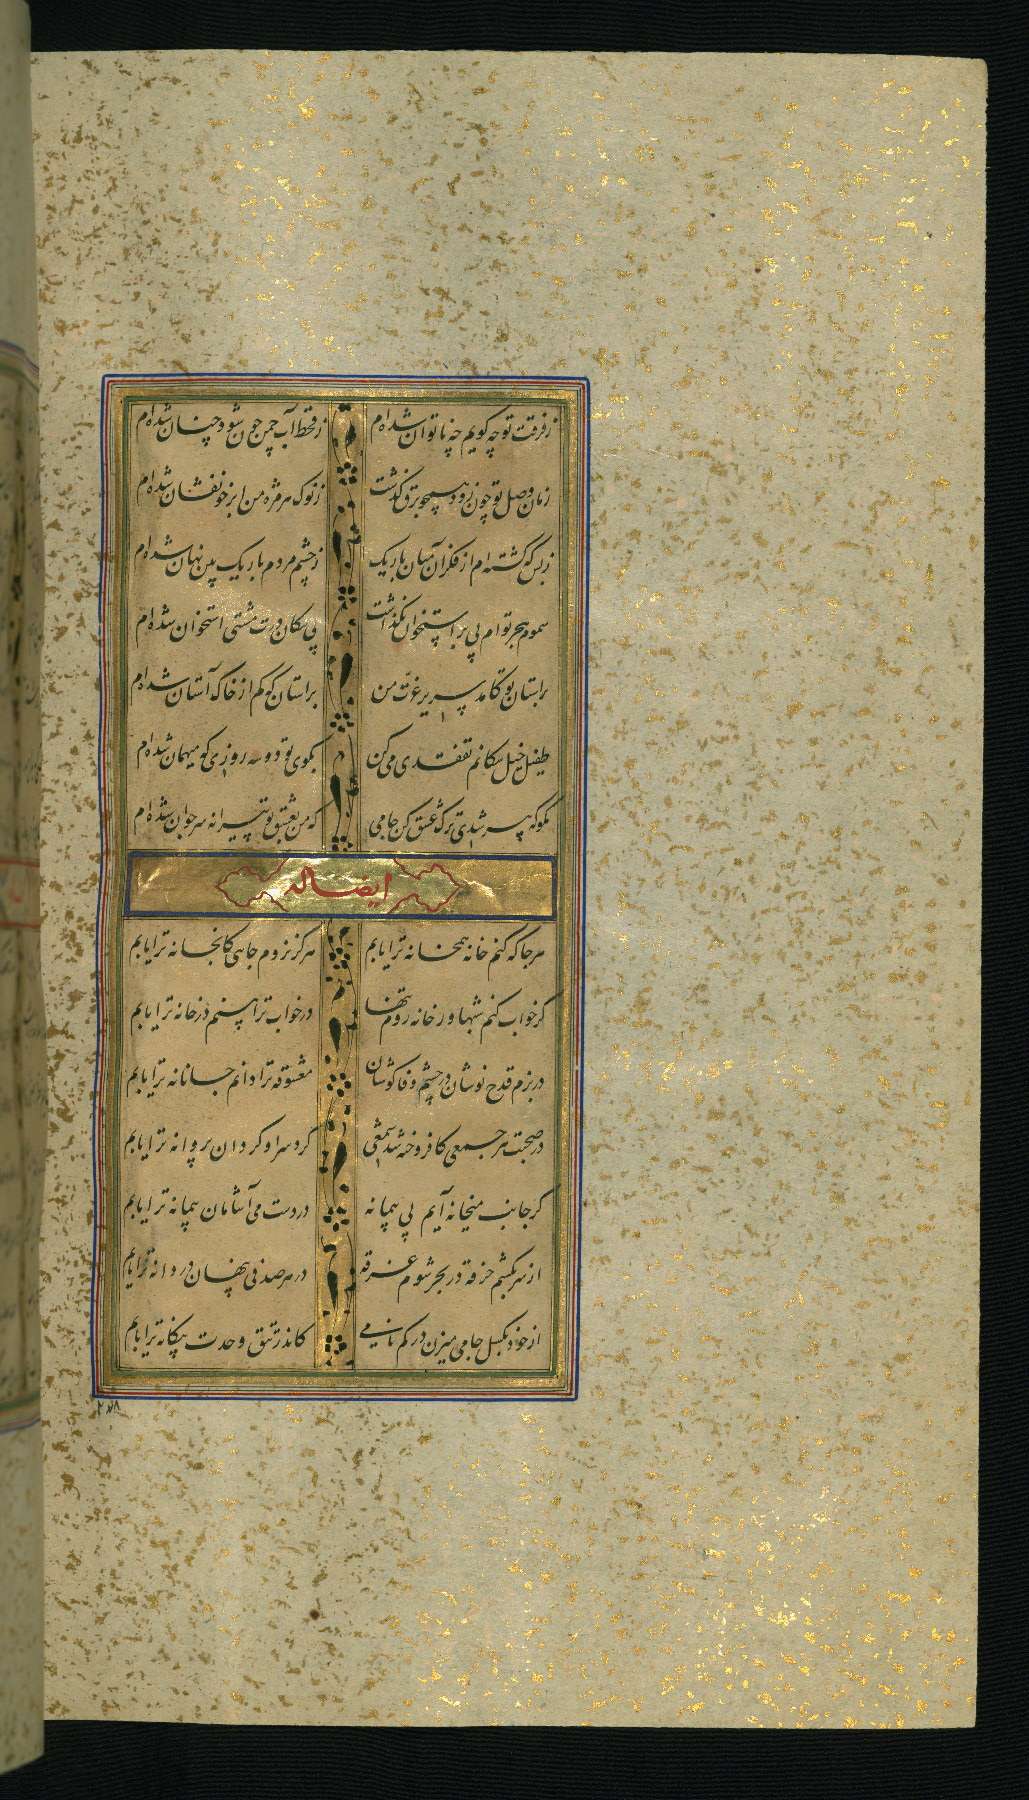 ز فرقت تو چه گویم چه ناتوان شده‌ام ز قحط آب چمن چون شود چنان شده‌ام
زمان وصل تو چون زود همچو برق گذشت ز نوک هر مژه من ابر خونفشان شده‌ام
ز بس که گشته‌ام از فکر آن میان باریک ز چشم مردم باریک بین نهان شده‌ام
سموم هجر توام پی بر استخوان نگذاشت پی سگان درت مشتی استخوان شده‌ام
بر آستان تو کآمد سریر عزت من بر آستان که کم از خاک آستان شده‌ام
طفیل خیل سگانم تفقدی می‌کن بکوی تو دو سه روزی که میهمان شده‌ام
مگو که پیر شدی ترک عشق کن جامی که من بعشق تو پیرانه سر جوان شده‌ام
ایضا له
هر جا که کنم خانه همخانه ترا یابم هرگز نروم جایی کانجا نه ترا یابم
گر خواب کنم شبها ور خانه روم تنها در خواب ترا بینم در خانه ترا یابم
در بزم قدح نوشان در چشم وفا کوشان معشوقه ترا دانم جانانه ترا یابم
در صحبت هر جمعی کافروخته شد شمعی گرد سر او گردان پروانه ترا یابم
گر جانب میخانه آیم پی پیمانه در دست می آشامان پیمانه ترا یابم
از سر بکشم خرقه در بحر شوم غرقه در هر صدفی پنهان دردانه ترا یابم
از خود بگسل جامی میزن در گم نامی کاندر تتق وحدت بیگانه ترا یابم